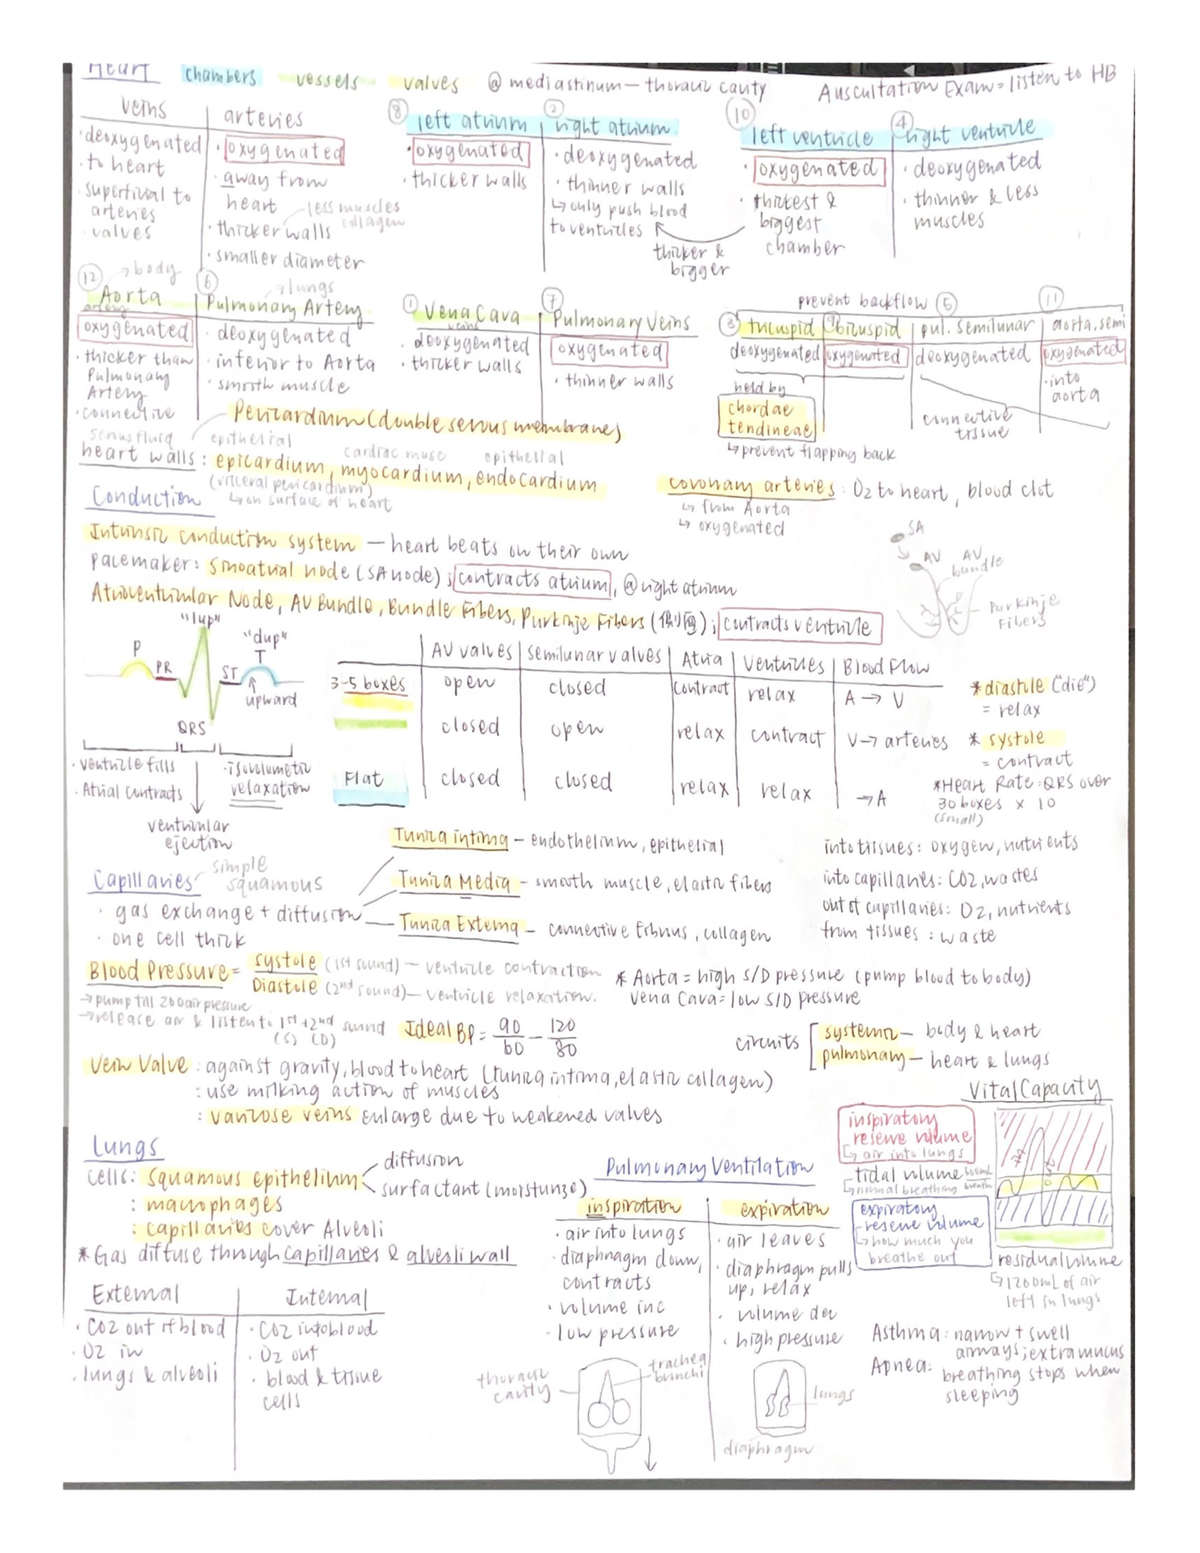 Heart chambers vessels valves @ mediastinum — thoracic cavity Auscultation Exam = listen to HB
veins
· deoxygenated
· to heart
· superficial to
arteries
· valves
arteries
· oxygenated
· away from
heart
less muscles
collagen
· thicker walls
· smaller diameter
⑧ left atrium
· oxygenated
· thicker walls
② right atrium
· deoxygenated
· thinner walls
↳ only push blood
to ventricles
thicker &
bigger
⑩ left ventricle
· oxygenated
· thickest &
biggest
chamber
④ right ventricle
· deoxygenated
· thinner & less
muscles
⑫ → body
Aorta
artery
oxygenated
· thicker than
Pulmonary
Artery
· connective
⑥ → lungs
Pulmonary Artery
· deoxygenated
· inferior to Aorta
· smooth muscle
① Vena Cava
veins
· deoxygenated
· thicker walls
⑦
Pulmonary Veins
oxygenated
· thinner walls
prevent backflow ⑤ ⑪
③ tricuspid ⑨ bicuspid pul. semilunar aorta. semi
deoxygenated oxygenated deoxygenated oxygenated
held by
chordae
tendineae
↳ prevent flapping back
· into
aorta
connective
tissue
Pericardium (double serous membrane)
serus fluid epithelial cardiac musc epithelial
heart walls : epicardium, myocardium, endocardium
(visceral pericardium)
↳ on surface of heart
coronary arteries : O2 to heart, blood clot
↳ from Aorta
↳ oxygenated
Conduction
Intrinsic conduction system — heart beats on their own
pacemaker : Sinoatrial node (SA node) ; contracts atrium, @ right atrium
Atrioventricular Node, AV Bundle, Bundle Fibers, Purkinje Fibers ; contracts ventricle
SA
AV AV
bundle
Purkinje
Fibers
"lup"
"dup"
P PR ST T
upward
QRS
· ventricle fills
· Atrial contracts
· isovolumetric
relaxation
ventricular
ejection
AV valves semilunar valves Atria Ventricles Blood Flow
3-5 boxes open closed contract relax A → V
closed open relax contract V → arteries
Flat closed closed relax relax → A
* diastole ("die")
= relax
* systole
= contract
* Heart Rate : QRS over
30 boxes × 10
(small)
Capillaries simple
squamous
· gas exchange + diffusion
· one cell thick
Tunica intima – endothelium, epithelial
Tunica Media – smooth muscle, elastic fibers
Tunica Externa – connective fibrus, collagen
into tissues : oxygen, nutrients
into capillaries : CO2, wastes
out of capillaries : O2, nutrients
from tissues : waste
Blood Pressure = systole (1st sound) — ventricle contraction
Diastole (2nd sound) — ventricle relaxation.
→ pump till 200 air pressure
→ release air & listen to 1st + 2nd sound
(S) (D)
* Aorta = high S/D pressure (pump blood to body)
Vena Cava = low S/D pressure
Ideal BP = 90/60 – 120/80
circuits [ systemic — body & heart
pulmonary — heart & lungs
Vein Valve : against gravity, blood to heart (tunica intima, elastic collagen)
: use milking action of muscles
: varicose veins enlarge due to weakened valves
Vital Capacity
inspiratory
reserve volume
↳ air into lungs
tidal volume
↳ normal breathing
expiratory
reserve volume
↳ how much you
breathe out
residual volume
↳ 1200mL of air
left in lungs
Lungs
cells : squamous epithelium < diffusion
surfactant (moisturize)
: macrophages
: capillaries cover Alveoli
* Gas diffuse through capillaries & alveoli wall
External
· CO2 out of blood
· O2 in
· lungs & alveoli
Internal
· CO2 into blood
· O2 out
· blood & tissue
cells
Pulmonary Ventilation
inspiration
· air into lungs
· diaphragm down,
contracts
· volume inc
· low pressure
expiration
· air leaves
· diaphragm pulls
up, relax
· volume dec
· high pressure
thoracic
cavity
trachea
brinchi
lungs
diaphragm
Asthma : narrow + swell
airways; extra mucus
Apnea : breathing stops when
sleeping